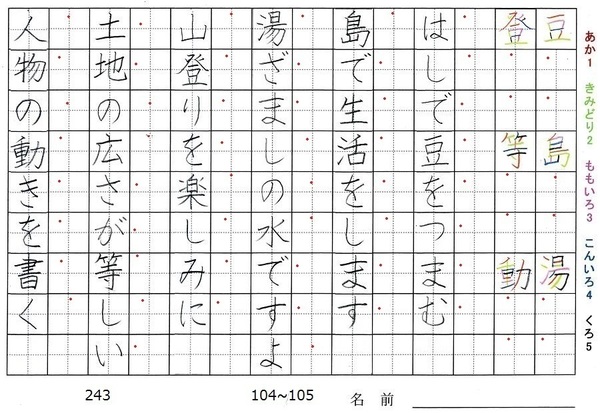 あか1 きみどり2 ももいろ3 こんいろ4 くろ5
豆島湯
登等動
はしで豆をつまむ
島で生活をします
湯ざましの水ですよ
山登りを楽しみに
土地の広さが等しい
人物の動きを書く
243 104~105 名前